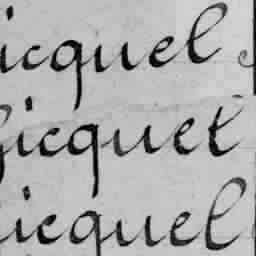 icquel
gicquet
icquel